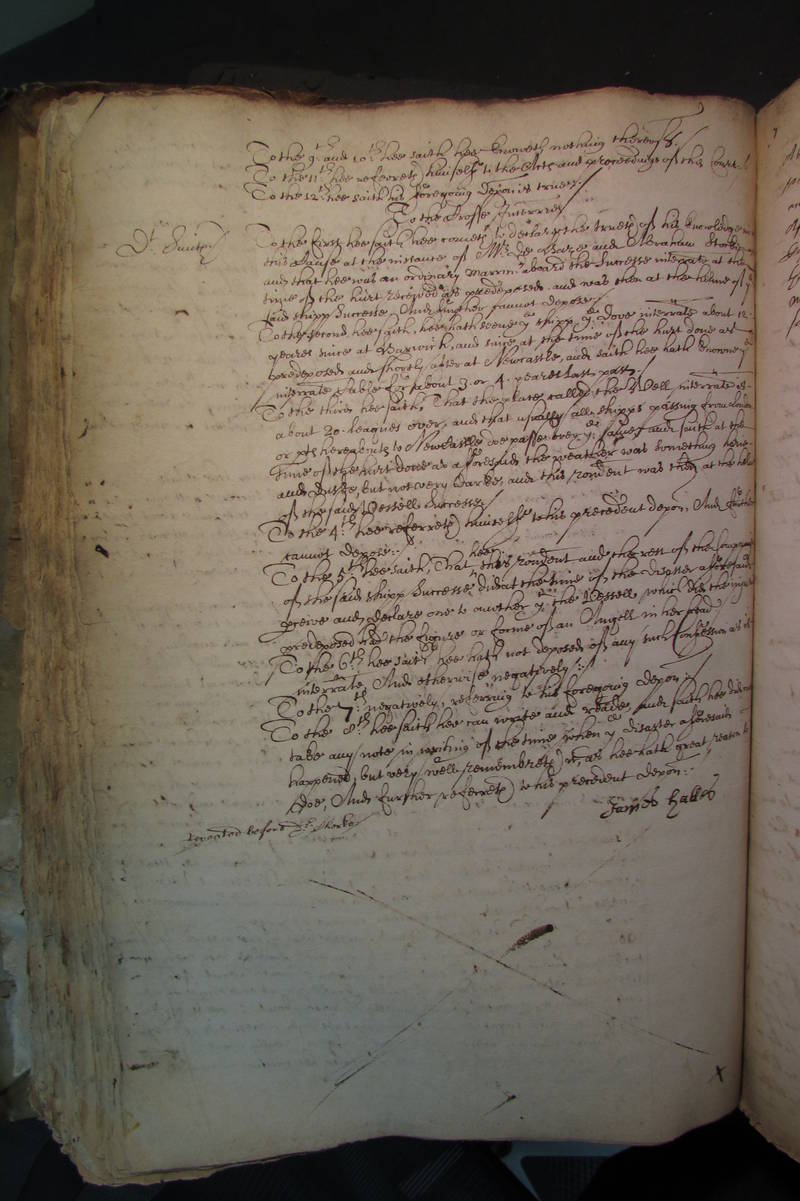 To the 9th and 10th hee saith hee knoweth nothing thereof /
To the 11th hee referreth himselfe to the Acts and proceedings of this Court /
To the 12th hee saith his foregoing deposn is true /
To the Crosse Interries
Dr. 
To the first hee saith hee cometh to declare the trueth of his knowledge in
this Cause at the instance of Mr. and Abraham
and that hee was an ordinary marriner aboard the Successe interrate at the
time of the hurt received as predeposed. and was then at the helme of ye
said shipp Successe, And further cannot depose /
To the second hee saith, hee hath seene ye shipp ye Dove interrate about 12
yeares since at Barwick, and since at the time of the hurt done as
predeposed and shortly after at Newcastle, and saith hee hath knowne ye
interrate for about 3. or 4. yeares last past /
To the third hee saith, That the place called the Well interrate is
about 20. leagues over, and that usually all shipps passing from London
or pts hereabouts to Newcastle doe passe over ye same, and saith at the
time of the hurt done as aforesaid the weather was something
and , but not very darke, and this rondent was then at the helme
of the said Vessell Successe /
To the 4th hee referreth himselfe to his precedent depon, And further
cannot depose :
To the 5th hee saith, That hee this rondent and the rest of the Company
of the said shipp Successe did at the time of the disaster aforesaid
pceive and declare one to another yt the Vessell which did the injury
predeposed had the figure or forme of an Angell in her head /
To the 6th hee saith hee hath not deposed of any such Confession as is
interrate, And otherwise negatively /
To the 7th negatively, referring to his foregoing depon /
To the 8th hee saith hee can write and reade, and saith hee did not
take any note in writing of the time when ye disaster aforesaid
happened, but very well remembreth it, as hee hath great reason to
doe, And further referreth to his precedent depon :
James
repeated before Dr. Clarke